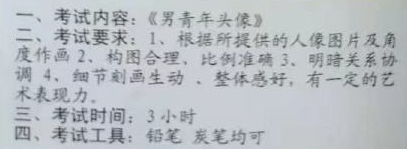 一、考试内容：《男青年头像》
二、考试要求：1、根据所提供的人像图片及角
度作画 2、构图合理，比例准确 3、明暗关系协
调 4、细节刻画生动 、整体感好，有一定的艺
术表现力。
三、考试时间：3小时
四、考试工具：铅笔 炭笔均可